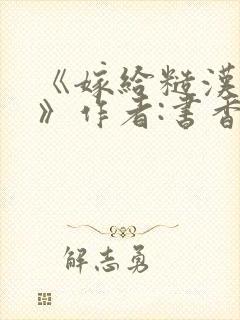 《嫁给糙漢
》作者:書香
解志勇